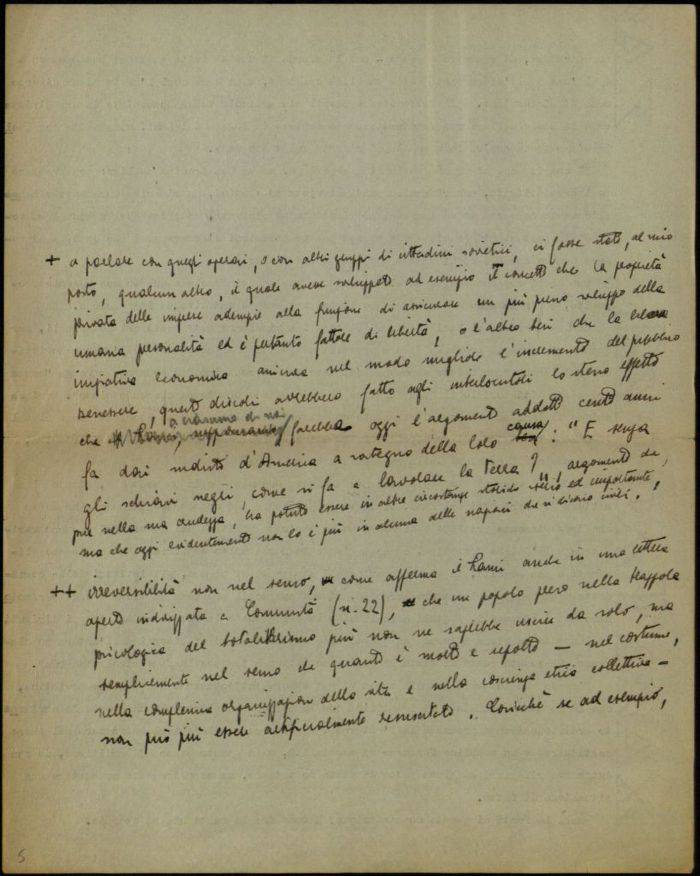 + a parlare con quegli operai, o con altri gruppi di cittadini sovietici, ci fosse stato, al mio
posto, qualcun altro, il quale avesse sviluppato ad esempio il concetto che la proprietà
privata delle imprese adempie alla funzione di assicurare un più pieno sviluppo della
umana personalità ed è pertanto fattore di libertà, o l'altro che la libera
iniziativa economica assicura nel modo migliore l'incremento del pubblico
benessere, questi discorsi avrebbero fatto agli interlocutori lo stesso effetto
a ciascuno di noi
che farebbe oggi l'argomento addotto cento anni
fa dai d'America a sostegno della loro causa : "E senza
gli schiavi negri, come si fa a lavorare la terra?", argomento che,
pur nella sua crudezza, ha potuto essere in altre circostanze storiche serio ed importante,
ma che oggi evidentemente non lo è più in alcuna delle nazioni che si dicono civili.
++ irreversibilità non nel senso, come afferma il anche in una lettera
aperta indirizzata a Comunità (n. 22), che un popolo preso nella trappola
psicologica del totalitarismo più non ne saprebbe uscire da solo, ma
semplicemente nel senso che quanto è morto e sepolto — nel costume,
nella complessiva organizzazione della vita e nella coscienza etica collettiva —
non può più essere artificialmente resuscitato. Cosicchè se ad esempio,
5